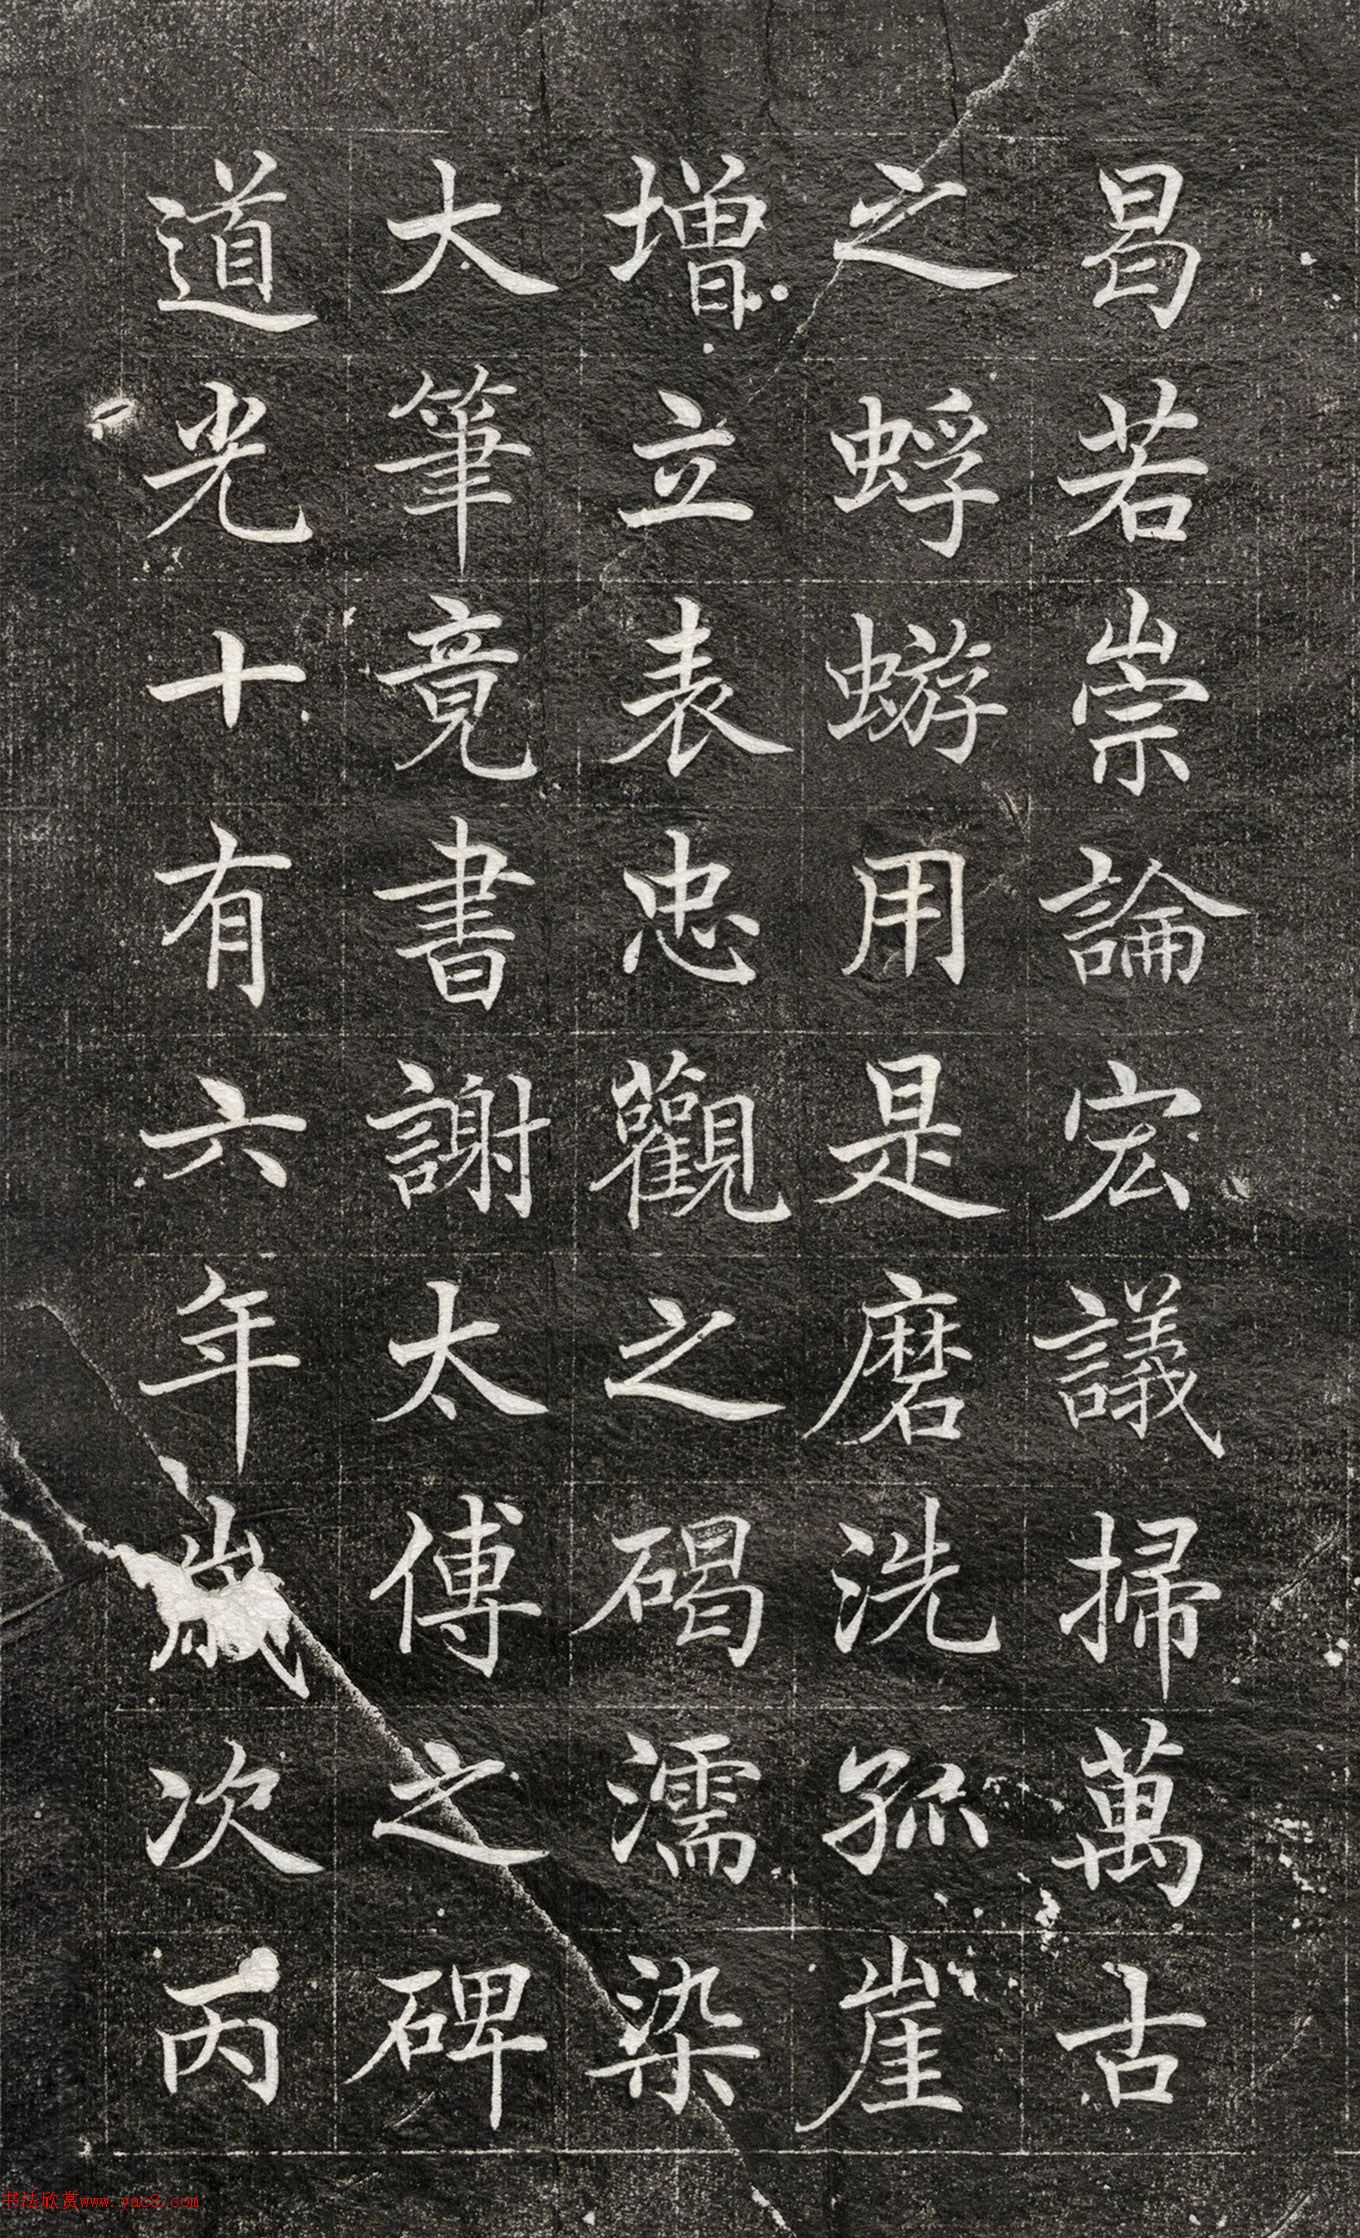 曷若崇論宏議掃萬古
之蜉蝣用是磨洗孤崖
增立表忠觀之碣濡染
大筆竟書謝太傅之碑
道光十有六年歲次丙
书法欣赏www.yac8.com